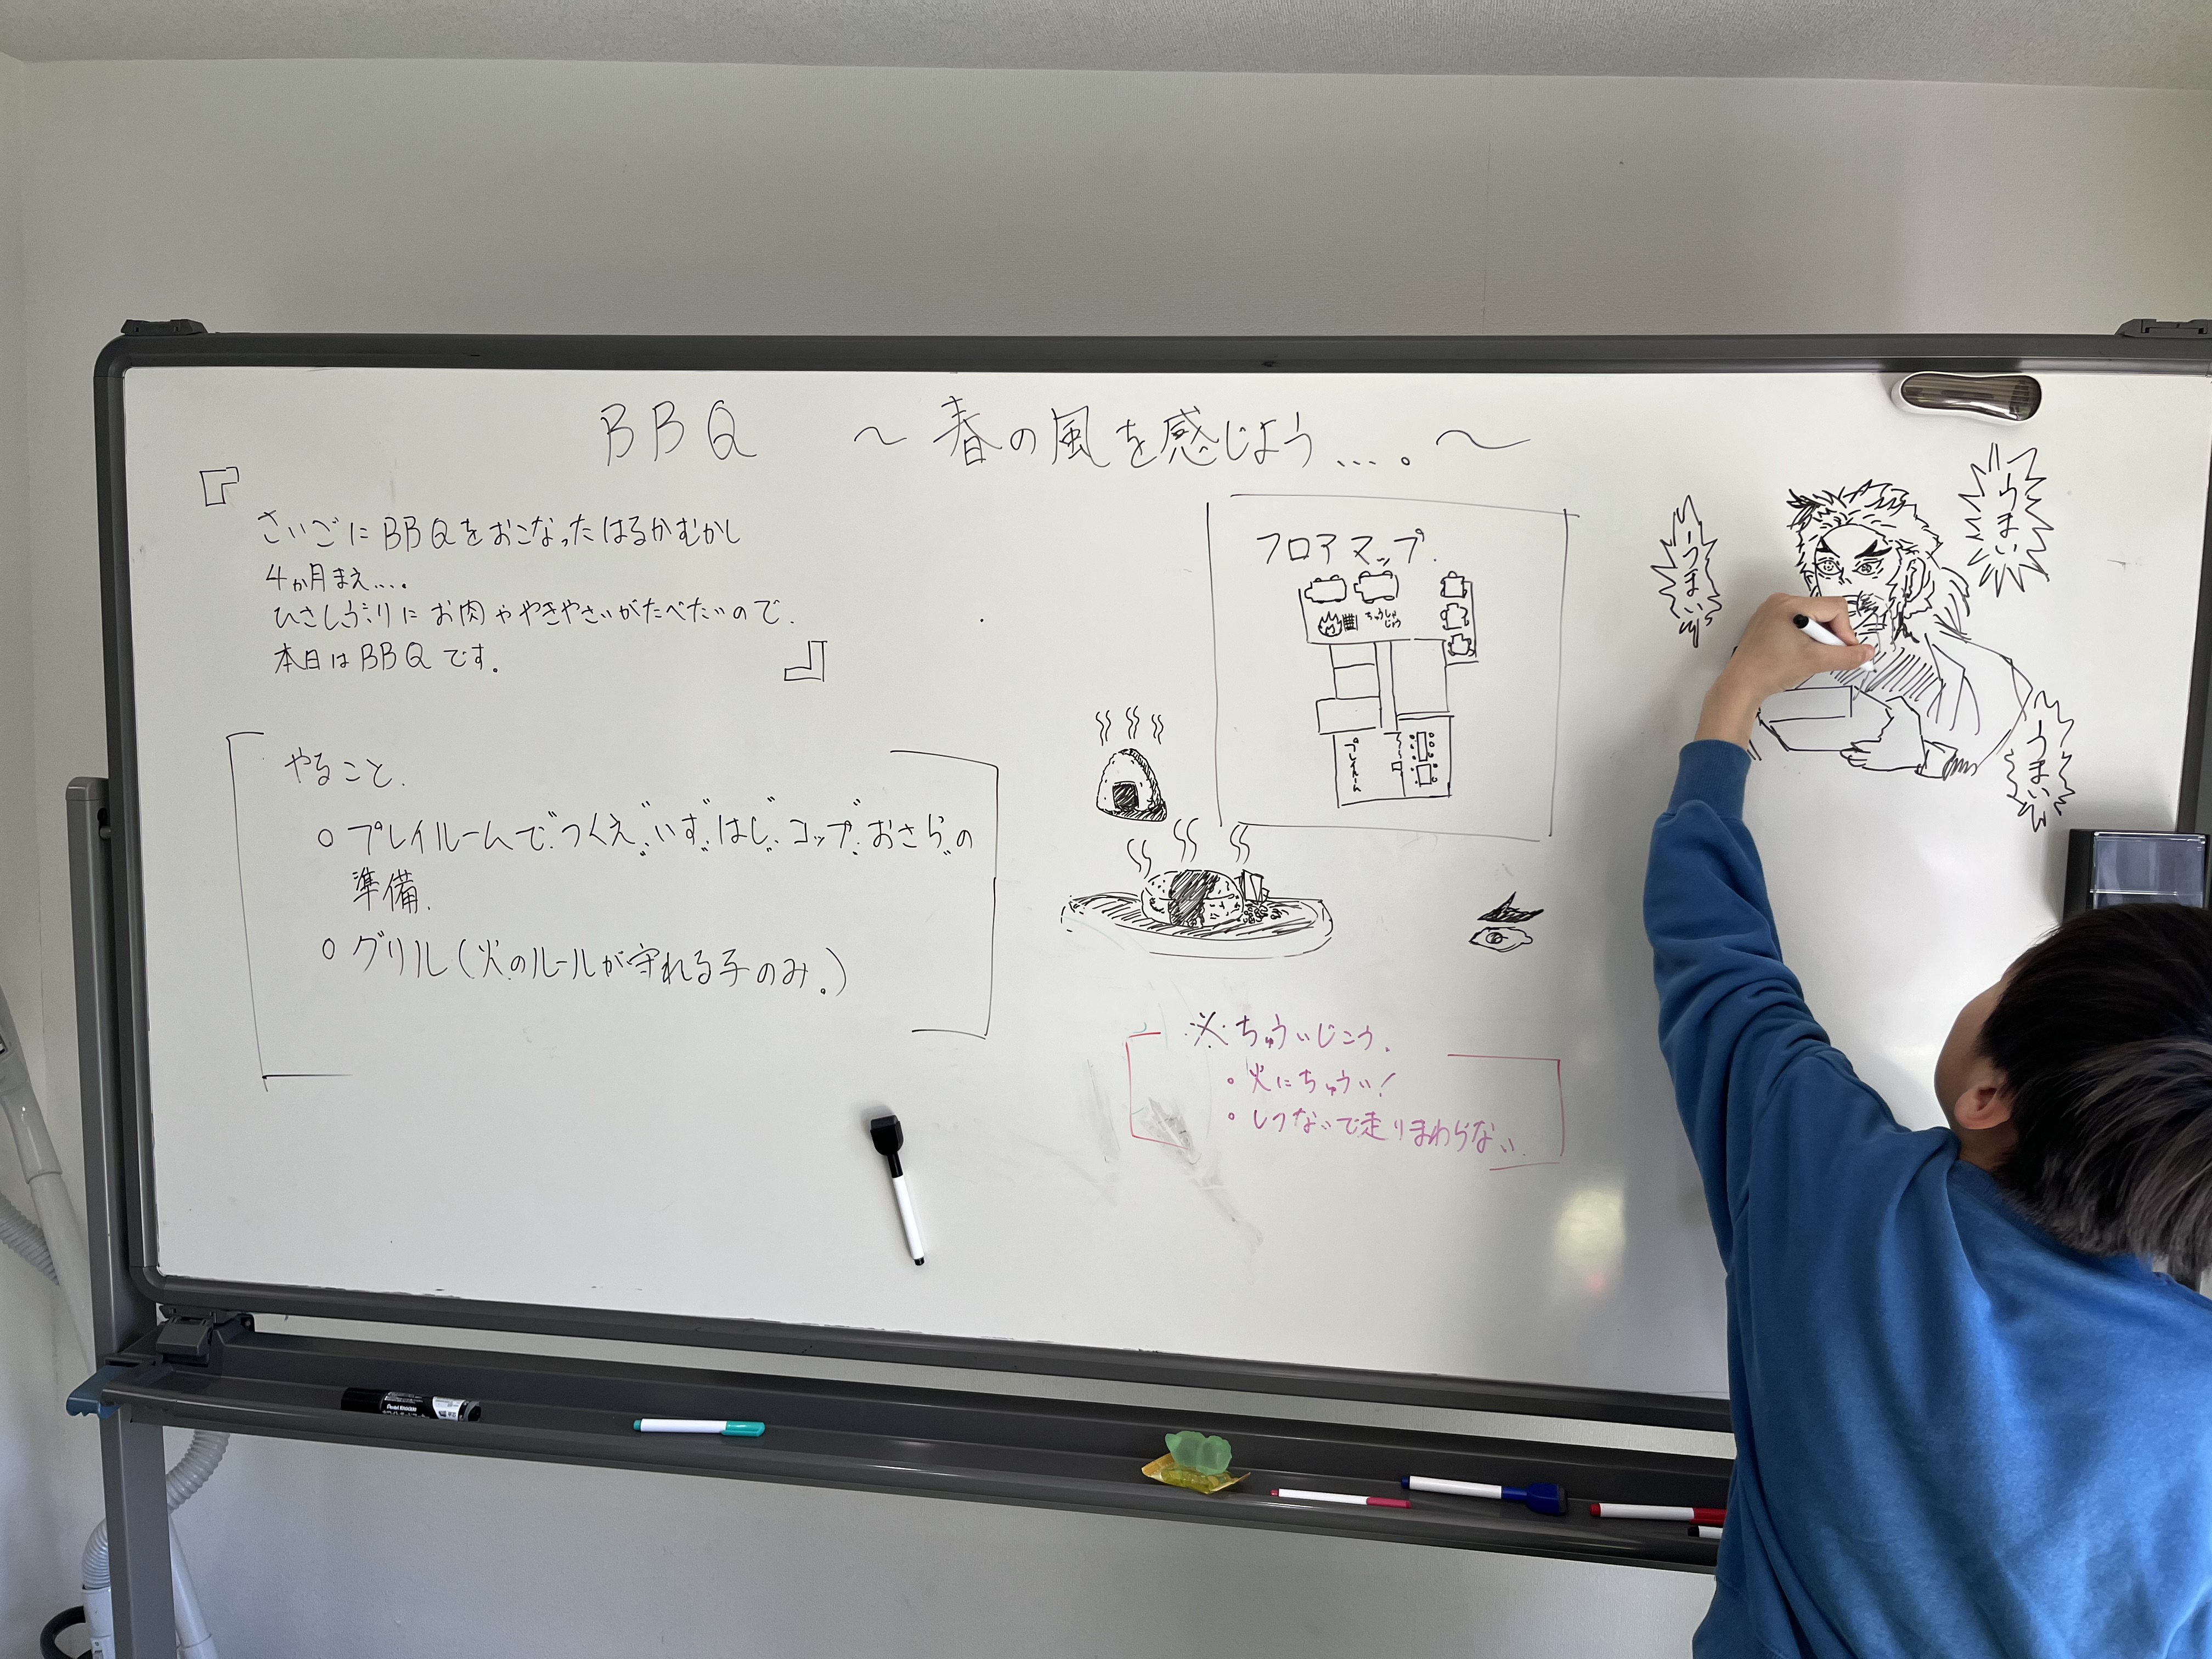 BBQ 〜春の風を感じよう…。〜
『
さいごにBBQをおこなったはるかむかし
4か月まえ….
ひさしぶりにお肉ややきやさいがたべたいので.
本日はBBQです。
』
やること.
○ プレイルームで"つくえ","いす","はし","コップ","おさら"の
準備.
○ グリル(火のルールが守れる子のみ。)
フロアマップ.
ちゅうしゃ
じょう
プレイルーム
※ちゅういじこう.
・火にちゅうい!
・しつないで走りまわらない.
うまい
うまい
うまい